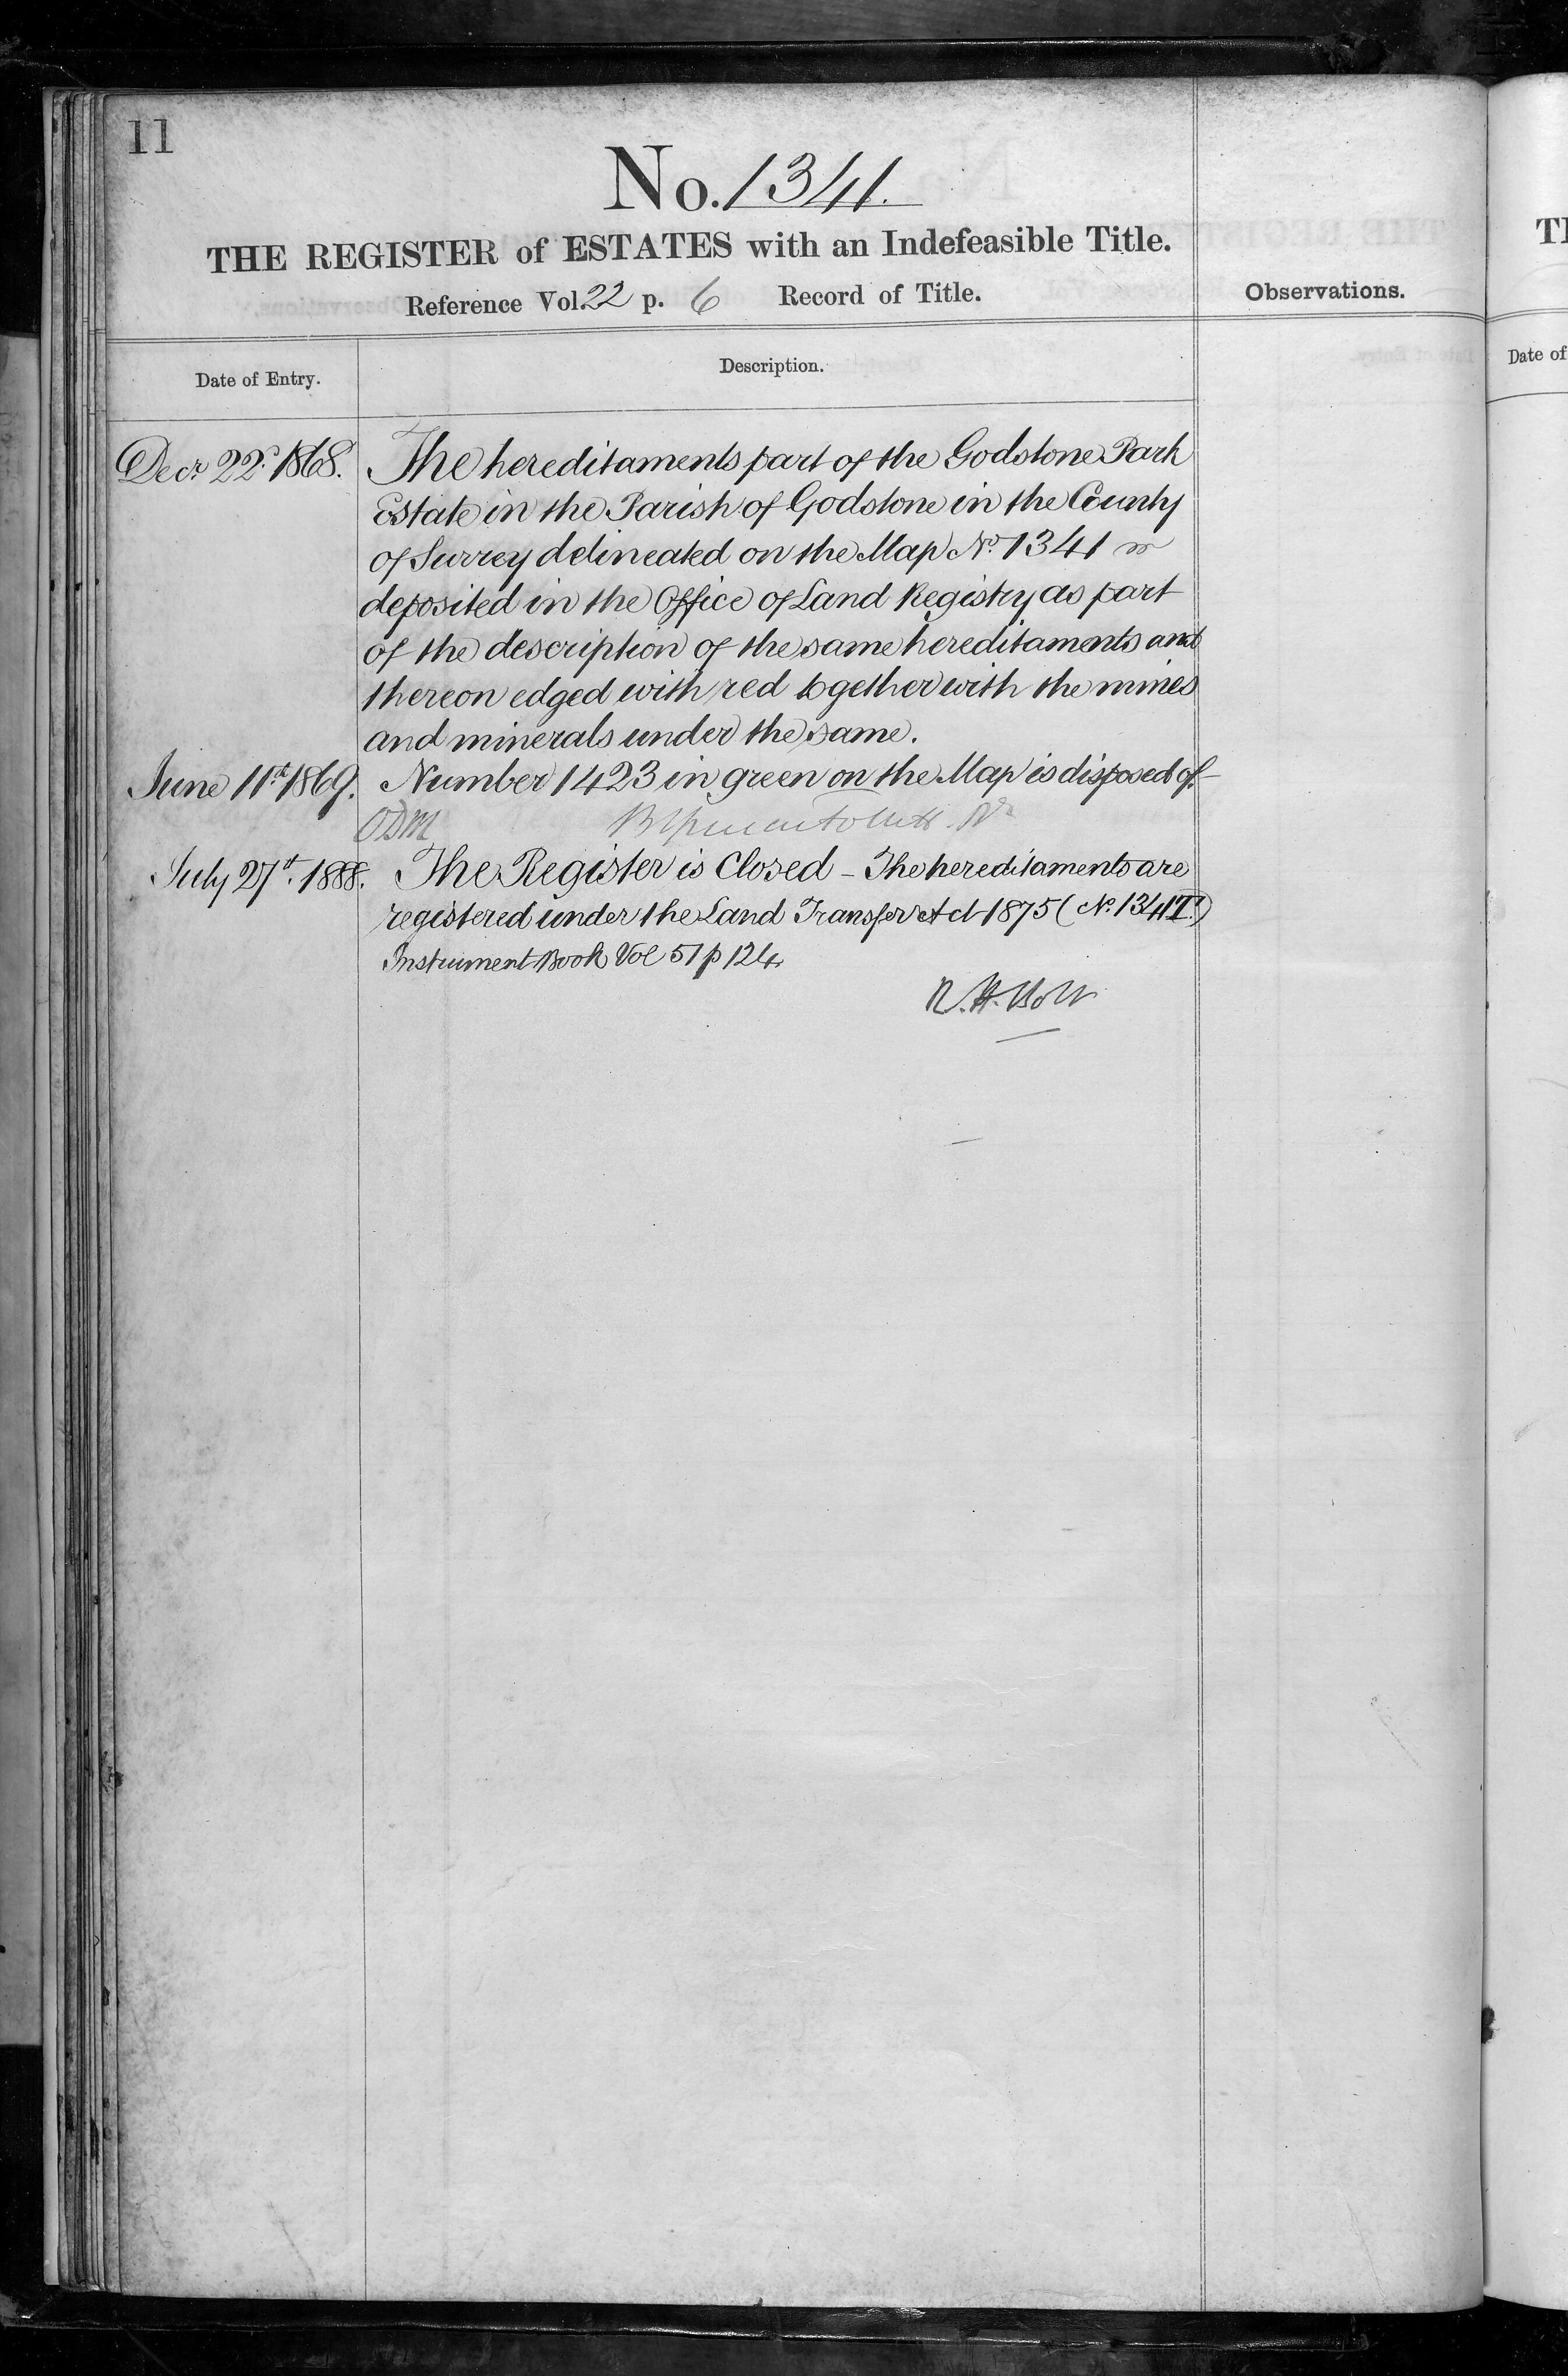 11
No. 1341.
THE REGISTER of ESTATES with an Indefeasible Title.
Reference Vol. 22 p. 6 Record of Title.
Observations.
Date of Entry.
Description.
Decr. 22d. 1868. The hereditaments part of the Godstone Park
Estate in the Parish of Godstone in the County
of Surrey delineated on the Map No. 1341
deposited in the Office of Land Registry as part
of the description of the same hereditaments and
thereon edged with red together with the mines
and minerals under the same.
June 11th 1869. Number 1423 in green on the Map is disposed of.
July 27th. 1888. The Register is Closed - The hereditaments are
registered under the Land Transfer Act 1875 (No. 1341T.)
Instrument Book Vol 51 p 124
R. H. Holt
TH
Date of